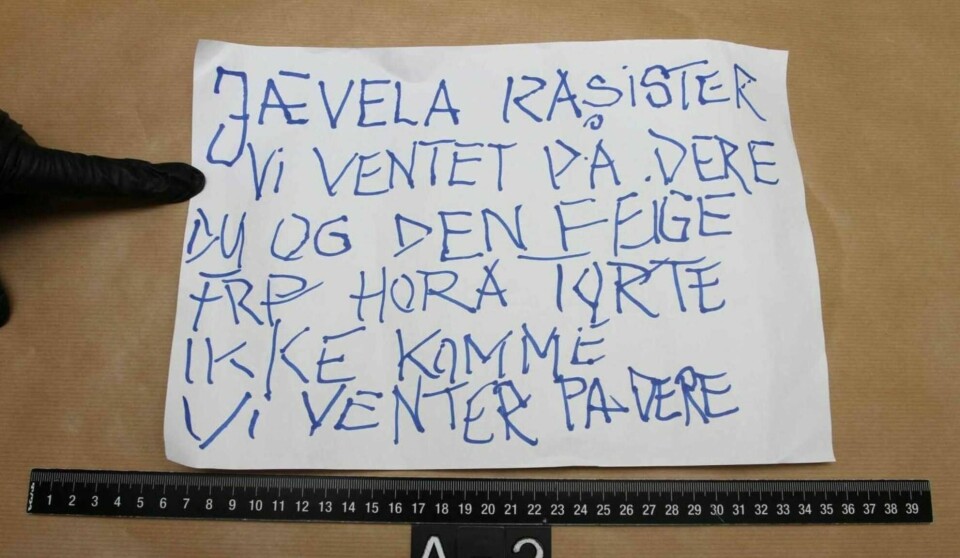 JÆVELA RASISTER
Vi VENTET PÅ DERE
DU OG DEN FEIGE
FRP HORA TORTE
IKKE KOMME
Vi VENTER PA DERE
1 2 3 4 5 6 7 8 9 10 11 12 13 14 15 16 17 18 19 20 21 22 23 24 25 26 27 28 29 30 31 32 33 34 35 36 37 38 39
A-2